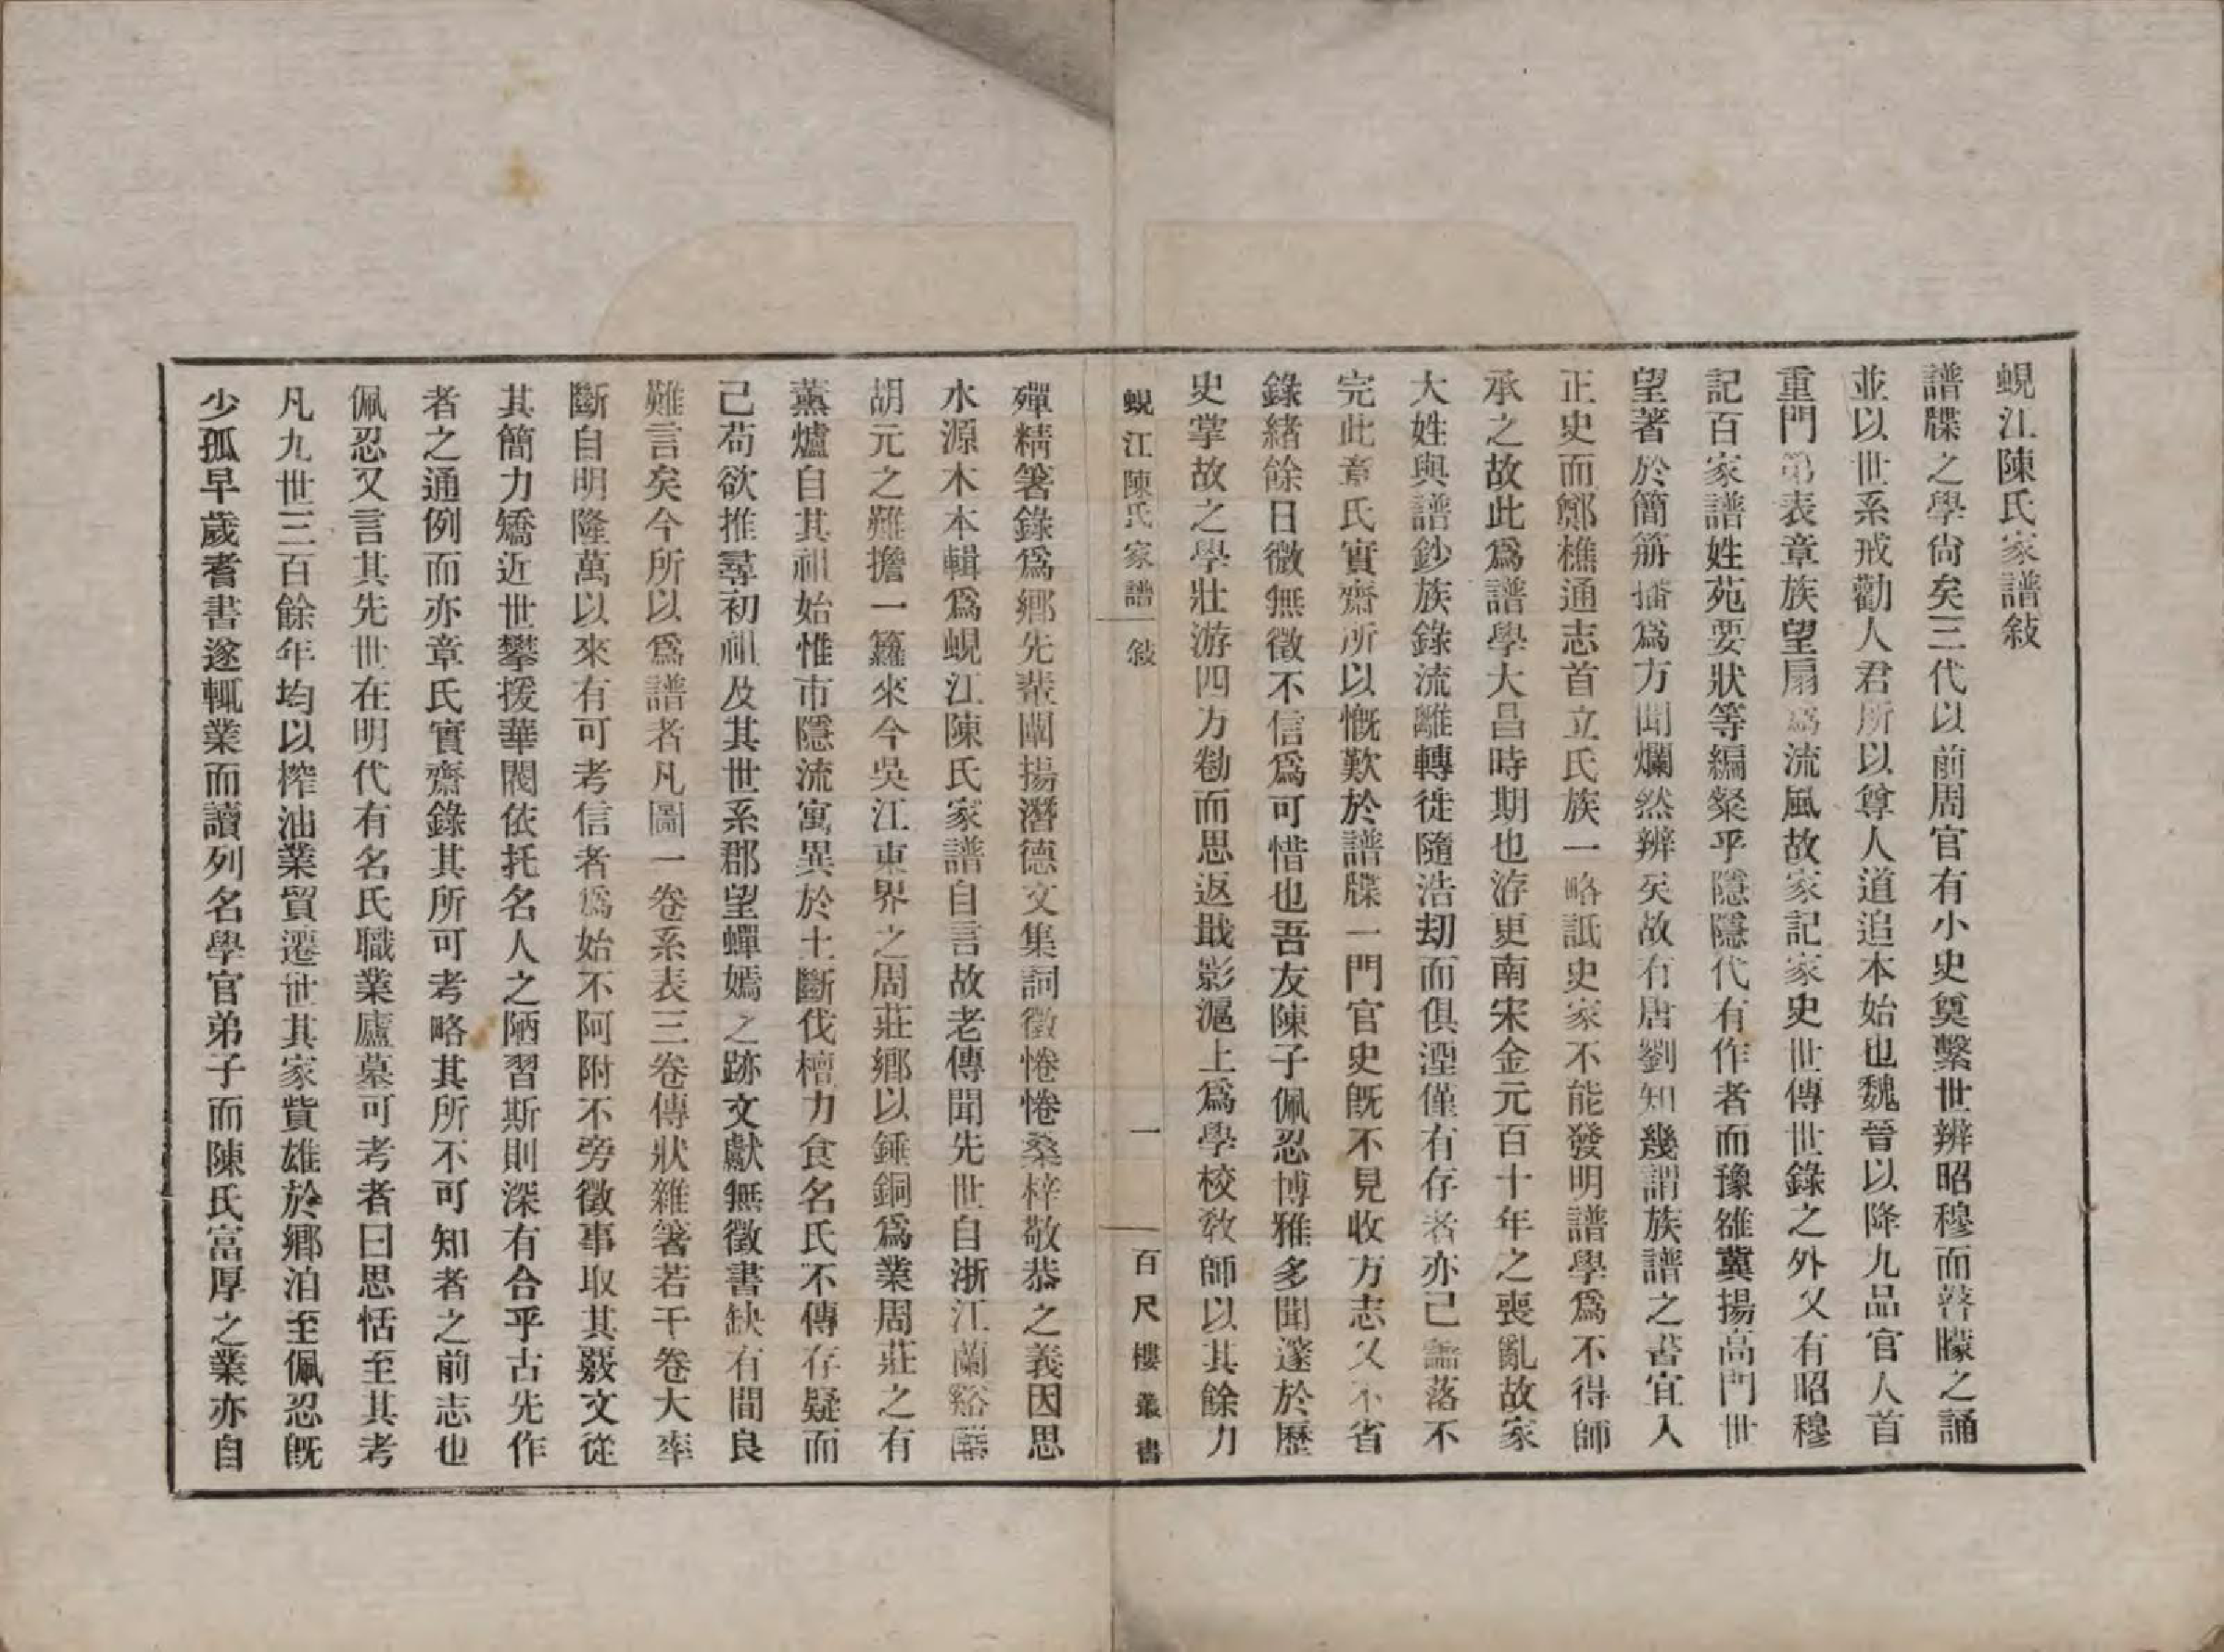 蜆江陳氏家譜敍
譜牒之學尙矣三代以前周官有小史奠繫世辨昭穆而瞽矇之誦
並以世系戒勸人君所以尊人道追本始也魏晉以降九品官人首
重門弟表章族望扇爲流風故家記家史世傳世錄之外又有昭穆
記百家譜姓苑要狀等編粲乎隱隱代有作者而豫雒冀揚高門世
望著於簡册播爲方聞爛然辨矣故有唐劉知幾謂族譜之書宜入
正史而鄭樵通志首立氏族一略詆史家不能發明譜學爲不得師
承之故此爲譜學大昌時期也洊更南宋金元百十年之喪亂故家
大姓與譜鈔族錄流離轉徙隨浩刧而俱湮僅有存者亦已零落不
完此章氏實齋所以慨歎於譜牒一門官史旣不見收方志又不省
錄緒餘日微無徵不信爲可惜也吾友陳子佩忍博雅多聞邃於歷
史掌故之學壯游四方勌而思返戢影滬上爲學校敎師以其餘力
蜆江陳氏家譜　敍　一　百尺樓叢書
殫精箸錄爲鄉先輩闡揚潛德文集詞徵惓惓桑梓敬恭之義因思
水源木本輯爲蜆江陳氏家譜自言故老傳聞先世自浙江蘭谿罹
胡元之難擔一籮來今吳江東界之周莊鄉以錘銅爲業周莊之有
薰爐自其祖始惟市隱流寓異於土斷伐檀力食名氏不傳存疑而
已苟欲推尋初祖及其世系郡望蟬嫣之跡文獻無徵書缺有間良
難言矣今所以爲譜者凡圖一卷系表三卷傳狀雜箸若干卷大率
斷自明隆萬以來有可考信者爲始不阿附不旁徵事取其覈文從
其簡力矯近世攀援華閥依托名人之陋習斯則深有合乎古先作
者之通例而亦章氏實齋錄其所可考略其所不可知者之前志也
佩忍又言其先世在明代有名氏職業廬墓可考者曰思恬至其考
凡九世三百餘年均以榨油業貿遷世其家貲雄於鄉洎至佩忍旣
少孤早歲耆書遂輒業而讀列名學官弟子而陳氏富厚之業亦自